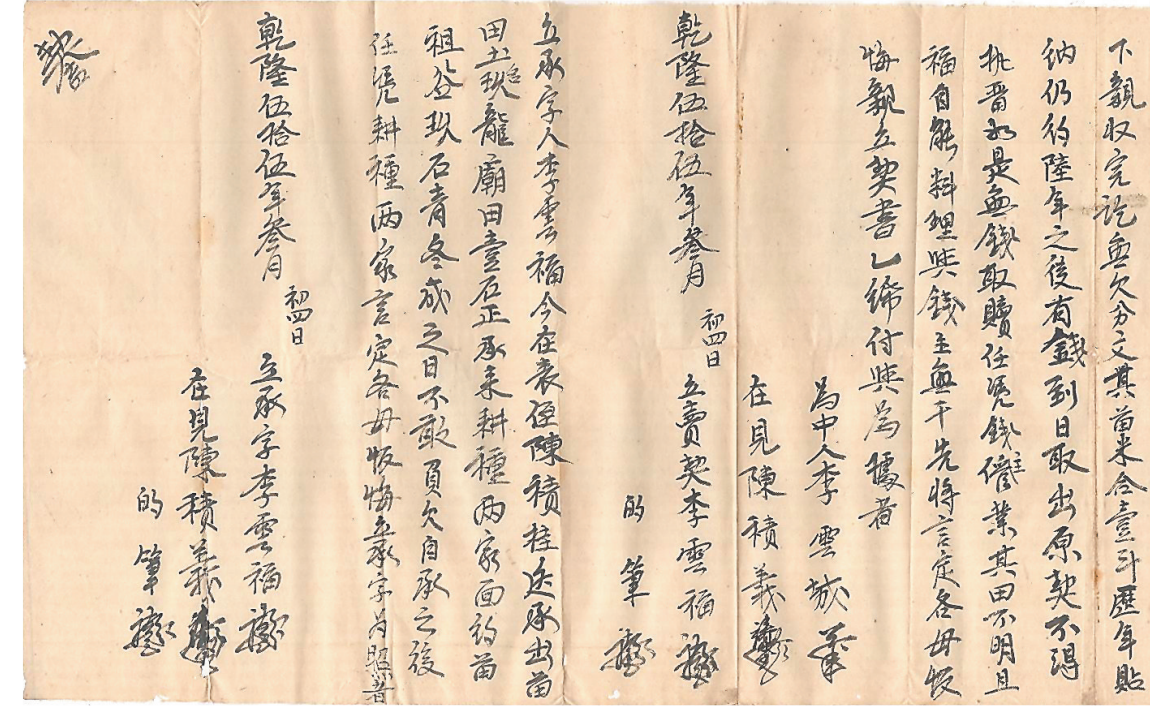 下親収完訖無欠分文其苗米合壹斗歷年貼
纳仍约陸年之後有錢到日取出原契不得
执畄如是無錢取贖任凭錢主管業其田不明且
福自能料理與錢主無干先将言定各毋恢
悔親立契書乙𥿄付與為㨿者
為中人李雲城
在見陳積義
立賣契李雲福
的筆
乾隆伍拾伍年叄月 初四日
立承字人李雲福今在表侄陳積桂边承出苗
田土名玖龍廟田壹石正承来耕種两家面约苗
租谷玖石青冬成之日不敢負欠自承之後
任凭耕種两家言定各毋恢悔立承字为照者
乾隆伍拾伍年叄月 初四日
立承字李雲福
在見陳積義
的筆